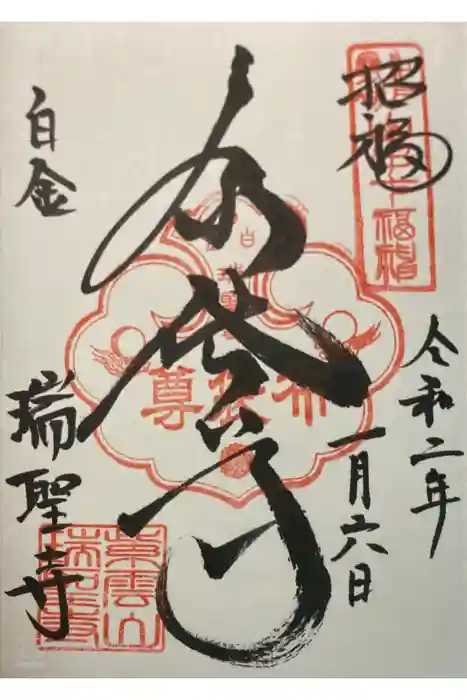 招福
令和二年
一月六日
布袋尊
布袋尊
白金
瑞聖寺
紫雲山
瑞聖寺